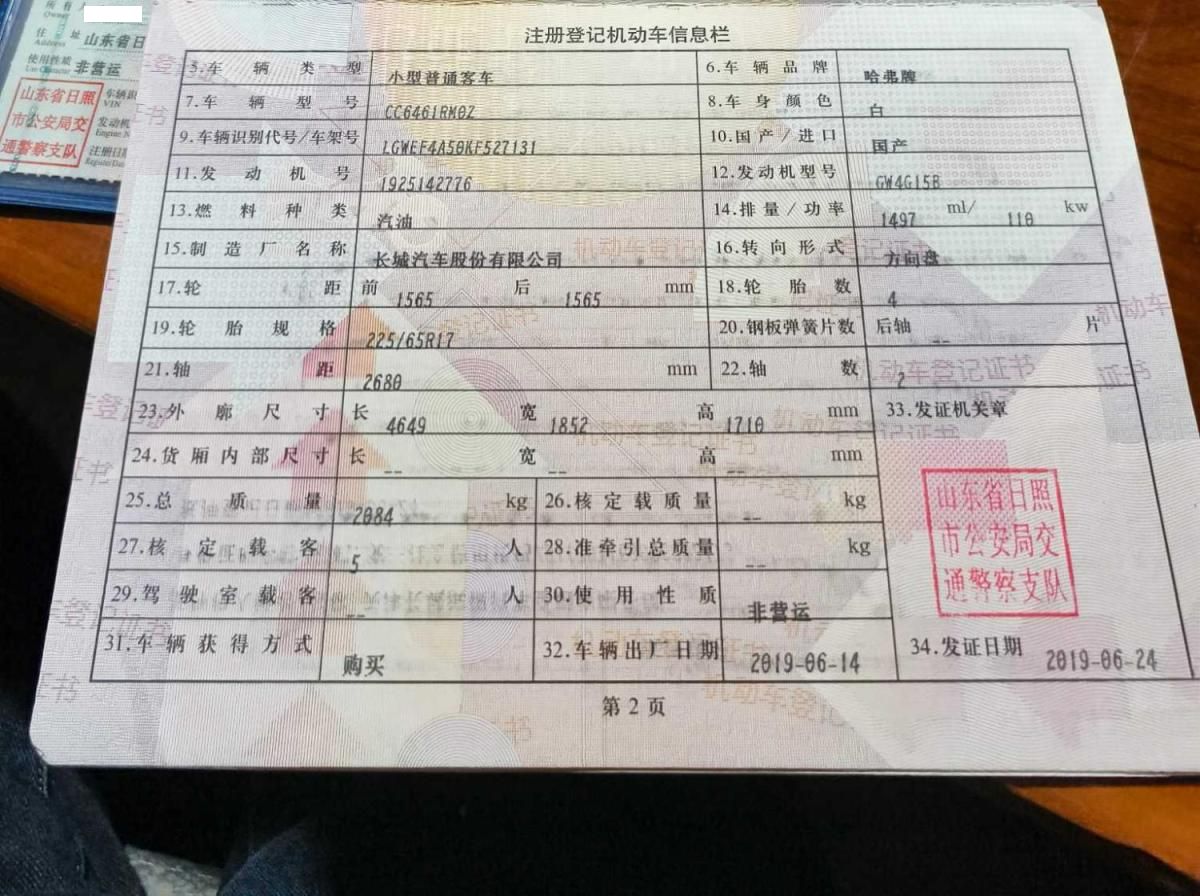 所有人
Owner
住址 山东省日
Address
使用性质 非营运
Use Character
山东省日照
市公安局交
通警察支队
车辆识
VIN
发动机
Engine N
注册日期
Register Dat
注册登记机动车信息栏
5.车辆类型 小型普通客车 6.车辆品牌 哈弗牌
7.车辆型号 CC6461RM0Z 8.车身颜色 白
9.车辆识别代号/车架号 LGWEF4A50KF527131 10.国产/进口 国产
11.发动机号 1925142776 12.发动机型号 GW4G15B
13.燃料种类 汽油 14.排量/功率 1497 ml/ 110 kw
15.制造厂名称 长城汽车股份有限公司 16.转向形式 方向盘
17.轮距 前 1565 后 1565 mm 18.轮胎数 4
19.轮胎规格 225/65R17 20.钢板弹簧片数 后轴 -- 片
21.轴距 2680 mm 22.轴数 2
23.外廓尺寸 长 4649 宽 1852 高 1710 mm 33.发证机关章
24.货厢内部尺寸 长 -- 宽 -- 高 -- mm
25.总质量 2084 kg 26.核定载质量 -- kg
27.核定载客 5 人 28.准牵引总质量 -- kg
29.驾驶室载客 -- 人 30.使用性质 非营运
山东省日照
市公安局交
通警察支队
31.车辆获得方式 购买 32.车辆出厂日期 2019-06-14 34.发证日期 2019-06-24
第 2 页